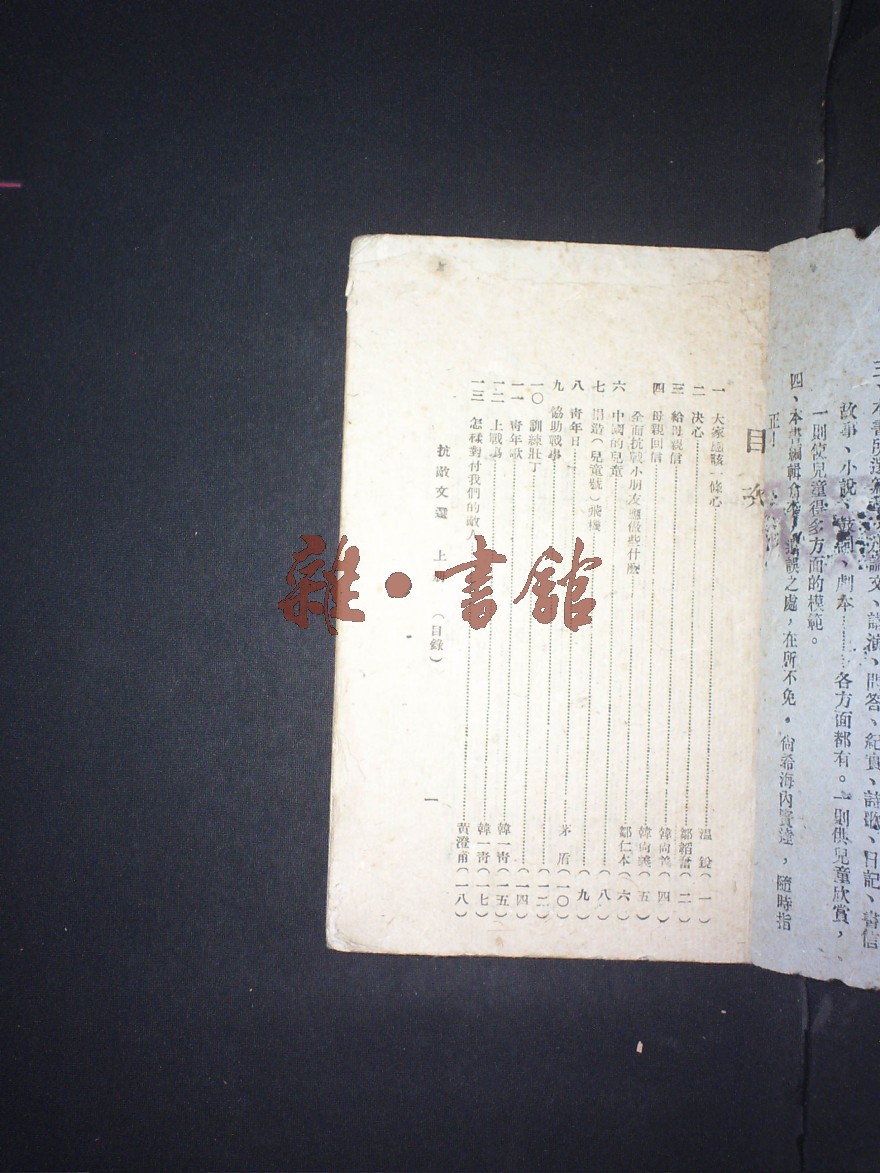 三、本書所選論文、講演、問答、紀實、詩歌、日記、書信
故事、小說、鼓詞、劇本………各方面都有。一則供兒童欣賞，
一則使兒童得多方面的模範。
四、本書編輯倉卒，錯誤之處，在所不免。尚希海內賢達，隨時指
正！
目次
一 大家應該一條心………溫銳（一）
二 决心………鄒韜奮（二）
三 給母親信………韓尚義（四）
四 母親回信………韓尚義（五）
全面抗戰小朋友應做些什麼………鄒仁本（六）
六 中國的兒童………（八）
七 捐造（兒童號）飛機………（九）
八 靑年日………茅盾（一〇）
九 協助戰事………（一二）
一〇 訓練壯丁………（一四）
一一 靑年歌………韓一靑（一五）
一二 上戰場………韓一靑（一七）
一三 怎樣對付我們的敵人………黃澄甫（一八）
抗敵文選 上册 （目錄） 一
雜·書館